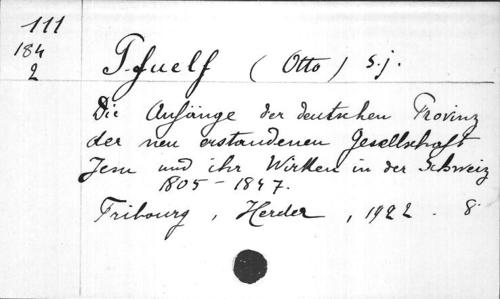 111
184
2
Pfuelf (Otto) S.j.
Die Anfänge der deutschen Provinz
der neu erstandenen Gesellschaft
Jesu und ihr Wirken in der Schweiz
1805 - 1847.
Fribourg, Herder, 1922. 8°